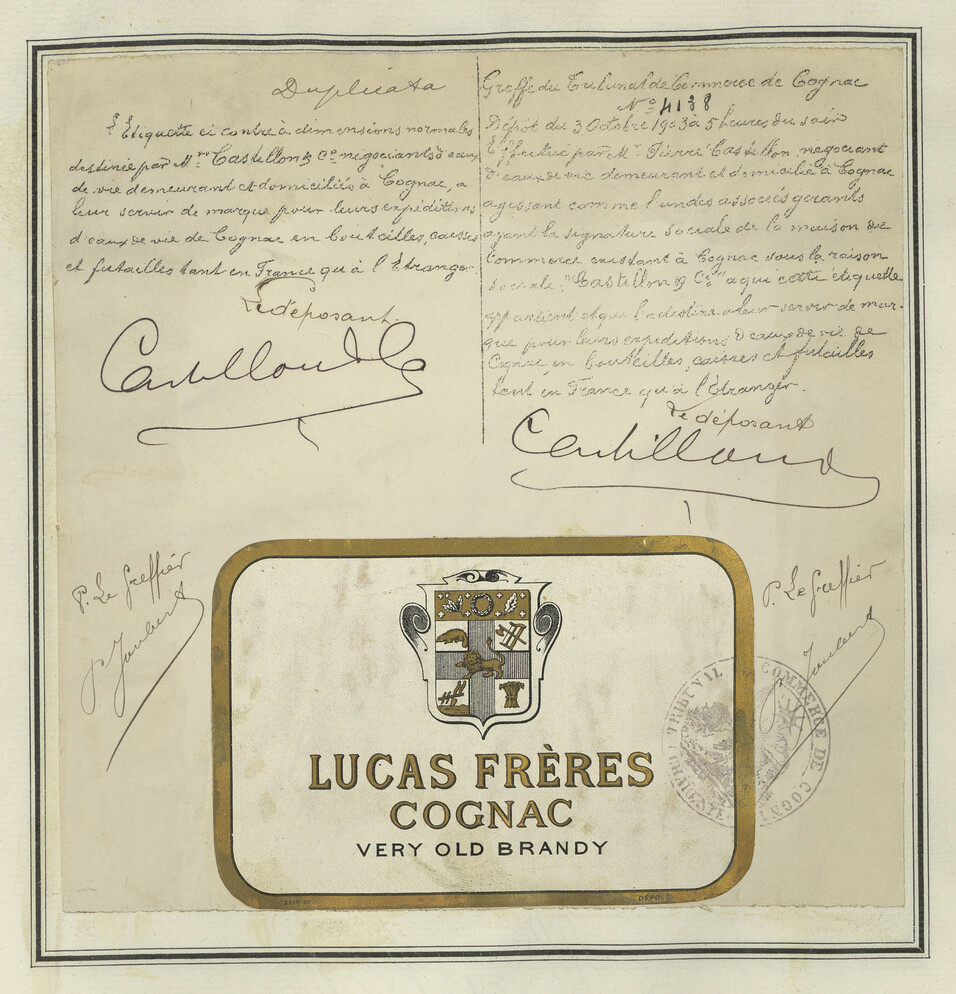 Duplicata
L'Etiquette ci contre à dimensions normales
destinée par Mrs Castillon & Co negociants d'eaux
de vie demeurant et domiciliés à Cognac, a
leur servir de marque pour leurs expéditions
d'eaux de vie de Cognac en bouteilles, caisses
et futailles tant en France qu'à l'Etranger.
Le déposant.
Castillon & Co
Greffe du Tribunal de Commerce de Cognac
No 4138
Dépôt du 3 Octobre 1903 à 5 heures du soir
Effectué par Mr Pierre Castillon, negociant
d'eaux de vie demeurant et domicilié à Cognac
agissant comme l'un des associés gerants
ayant la signature sociale de la maison de
Commerce existant à Cognac sous la raison
sociale "Castillon & Co" a qui cette étiquette
appartient et qui l'a destine a leur servir de mar-
que pour leurs expeditions d'eaux de vie de
Cognac en bouteilles, caisses et futailles
tant en France qu'à l'Etranger.
Le déposant
Castillon
P. Le Greffier
P. Joubert
P. Le Greffier
Joubert
TRIBUNAL COMMERCE DE COGNAC
CHARENTE
LUCAS FRÈRES
COGNAC
VERY OLD BRANDY
DÉPOSÉ